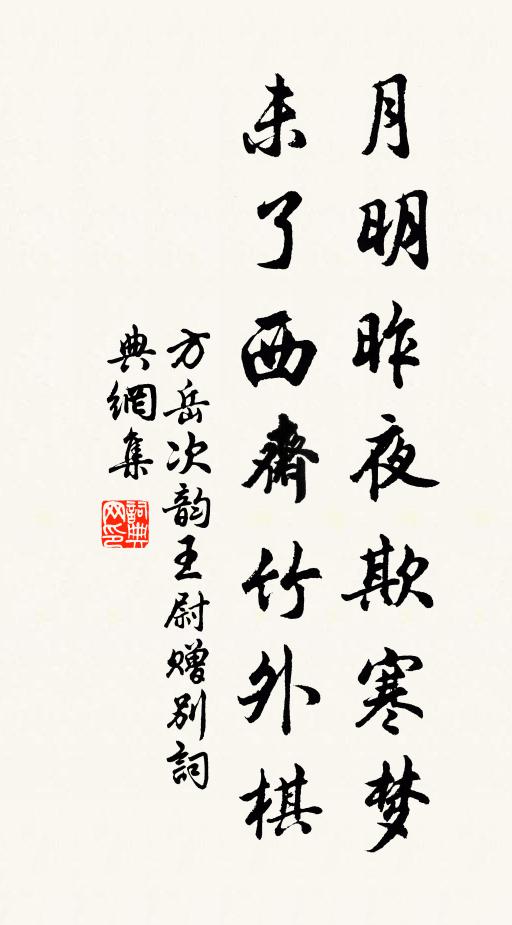 月明昨夜欺寒梦
未了西齋竹外棋
方岳次韵王尉赠别詞
典網集
詞典
网印